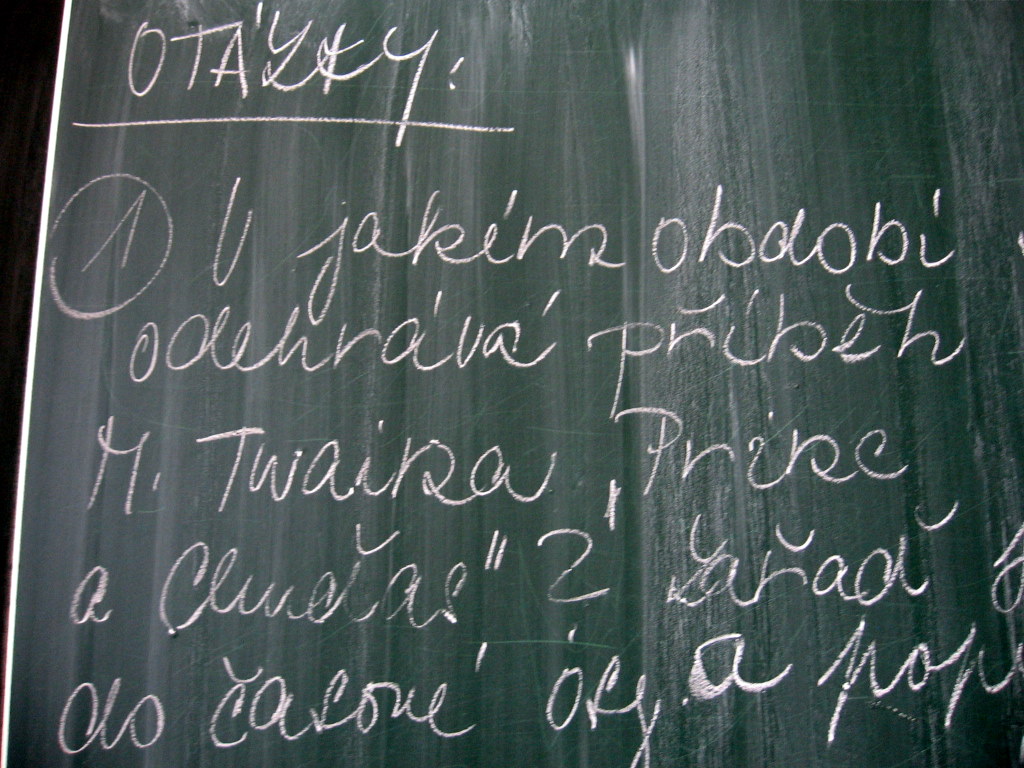 OTÁZKY:
① V jakém období
odehrává příběh
M. Twaina „Princ
a chuďas"? Zařaď
do časové osy a pop